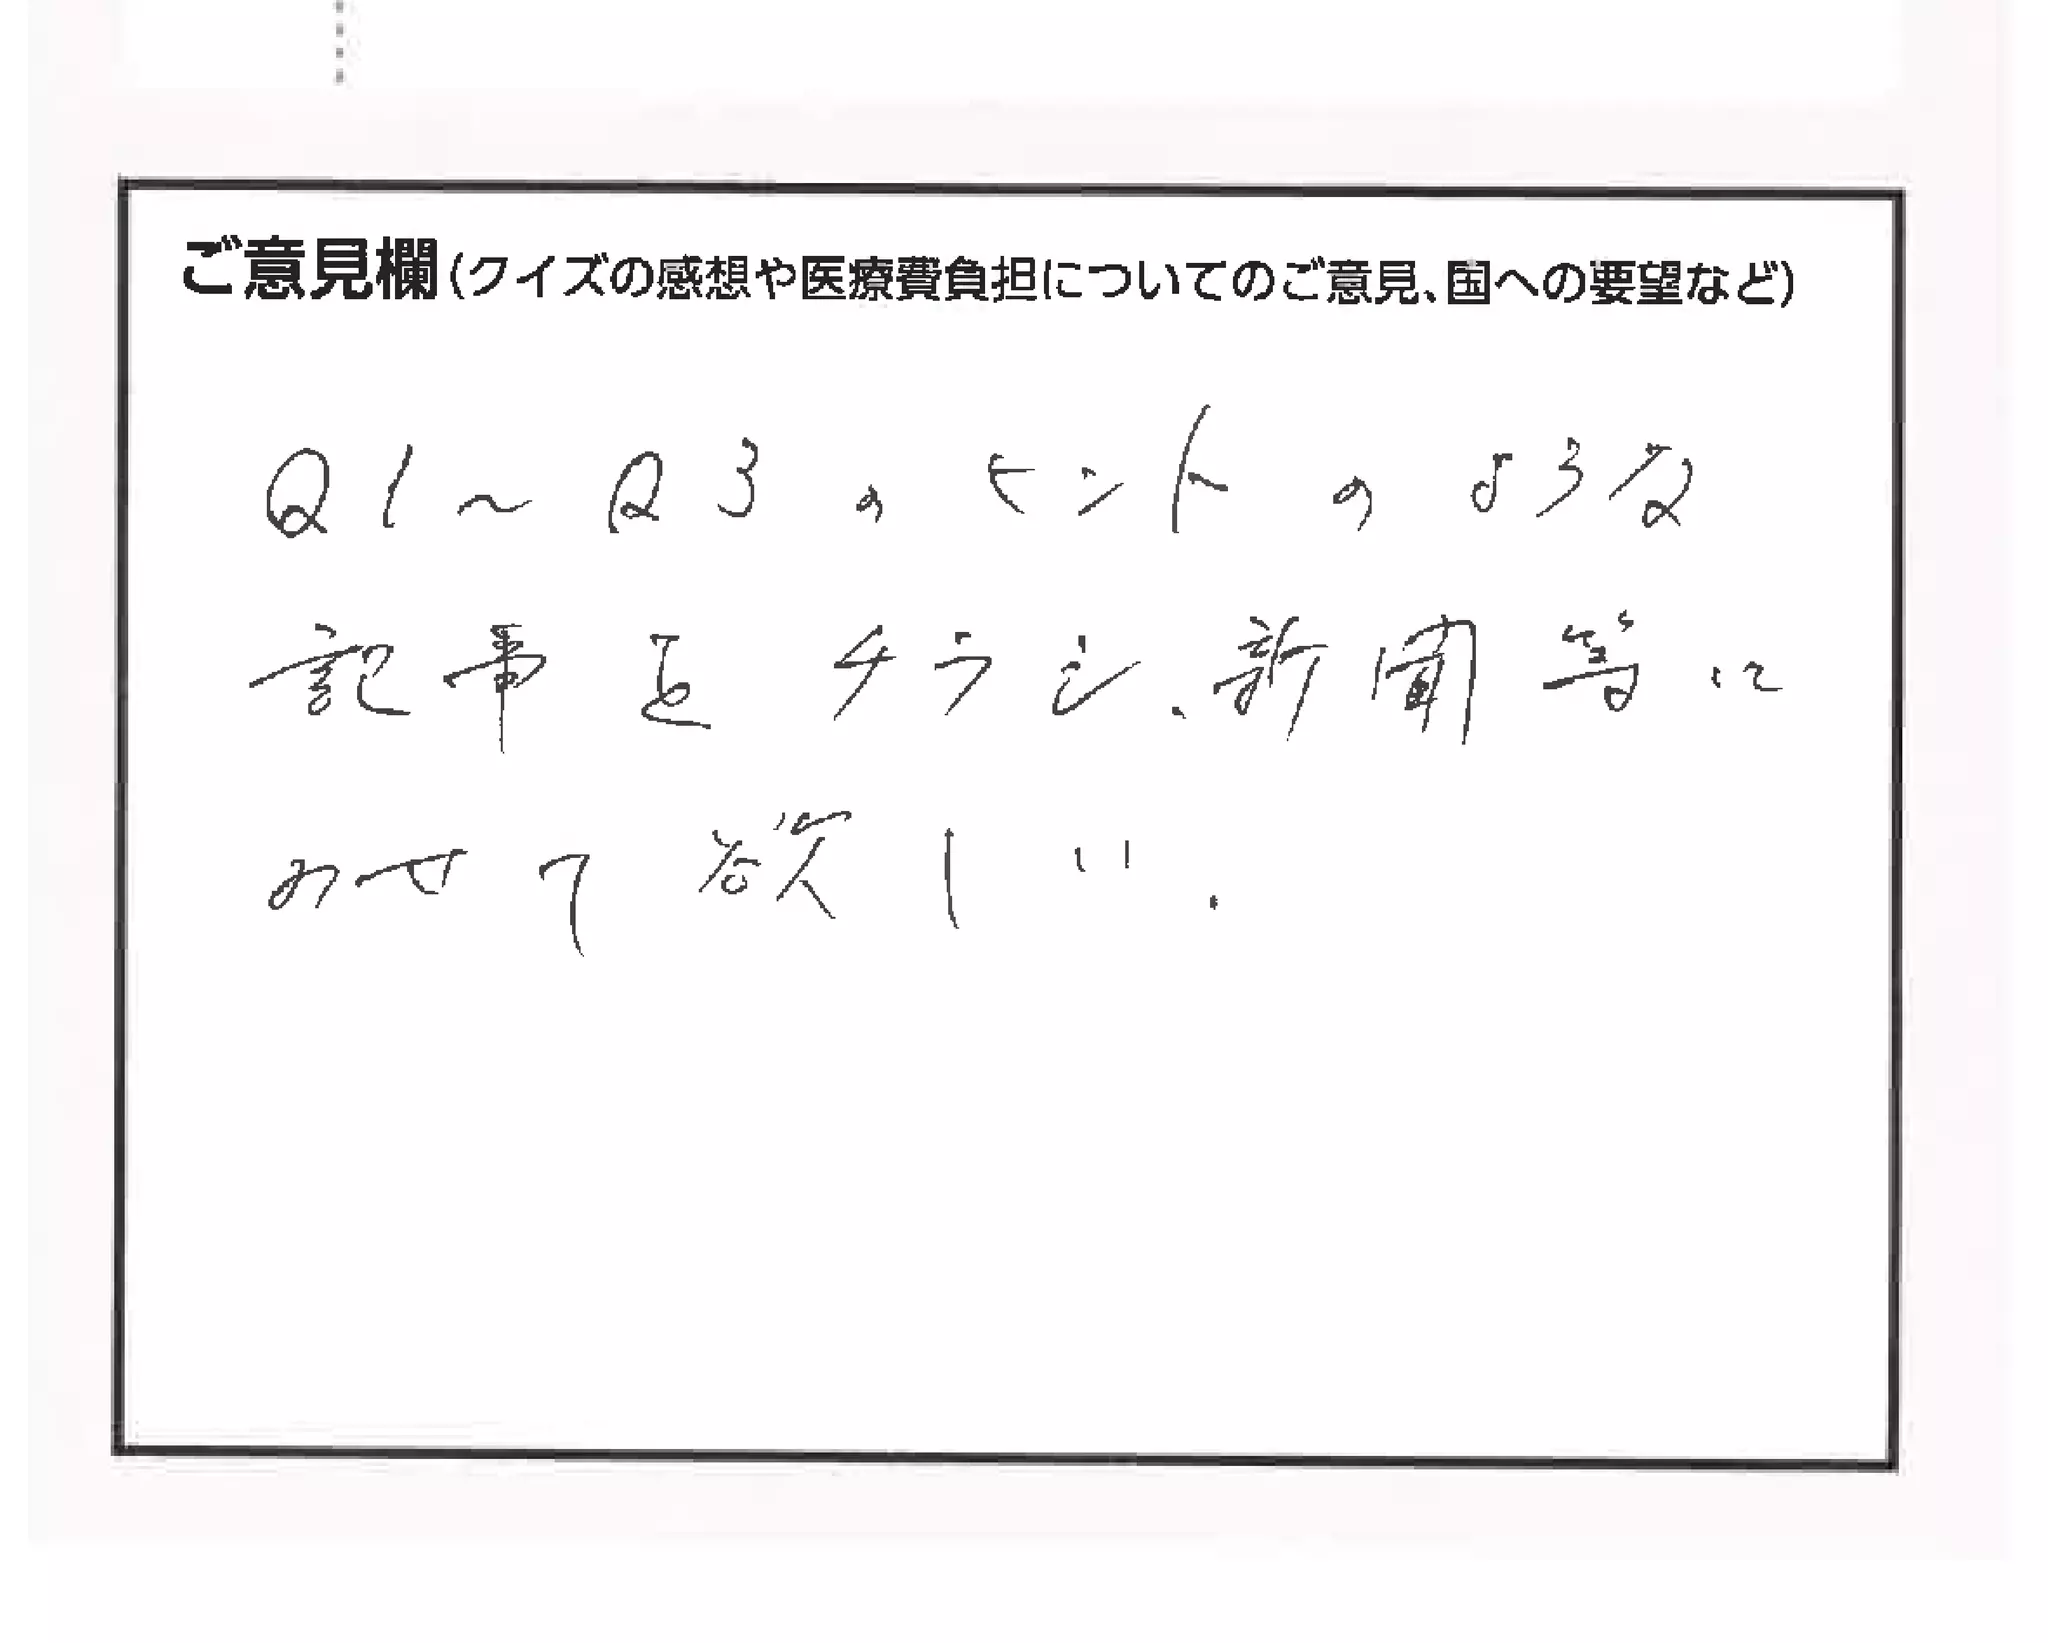 ご意見欄(クイズの感想や医療費負担についてのご意見、国への要望など)
Q1～Q3のヒントのような
記事をチラシ、新聞等に
のせて欲しい.